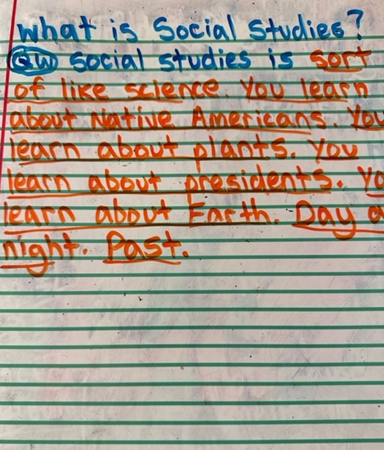 what is Social Studies?
QW social studies is sort
of like science. You learn
about Native Americans. You
learn about plants. You
learn about presidents. Yo
learn about Earth. Day a
night. Past.